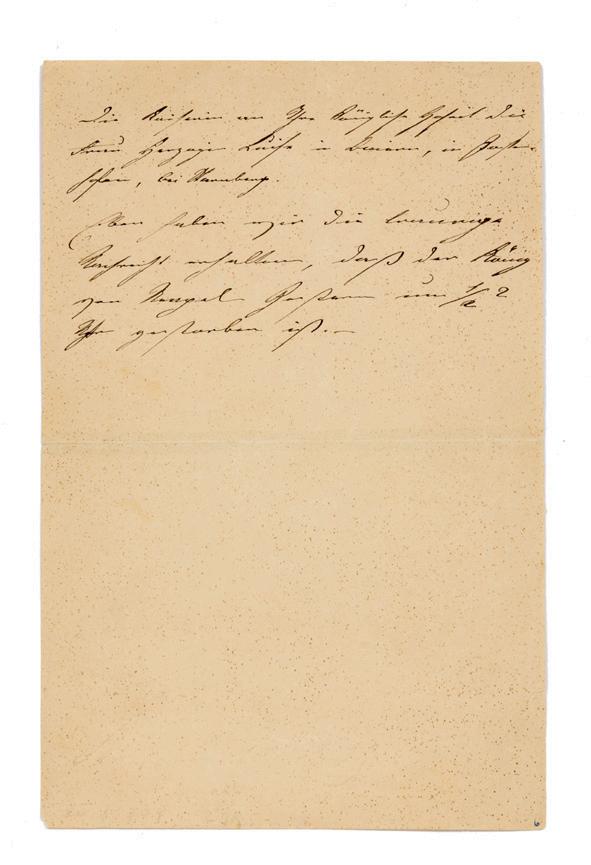 Die Kaiserin an Ihre Königliche Hoheit die
Frau Herzogin Luise in Baiern, in Possen-
hofen, bei Starnberg.
Eben haben wir die traurige
Nachricht erhalten, daß der König
von Neapel Gestern um 1/2 2
Uhr gestorben ist. –
6